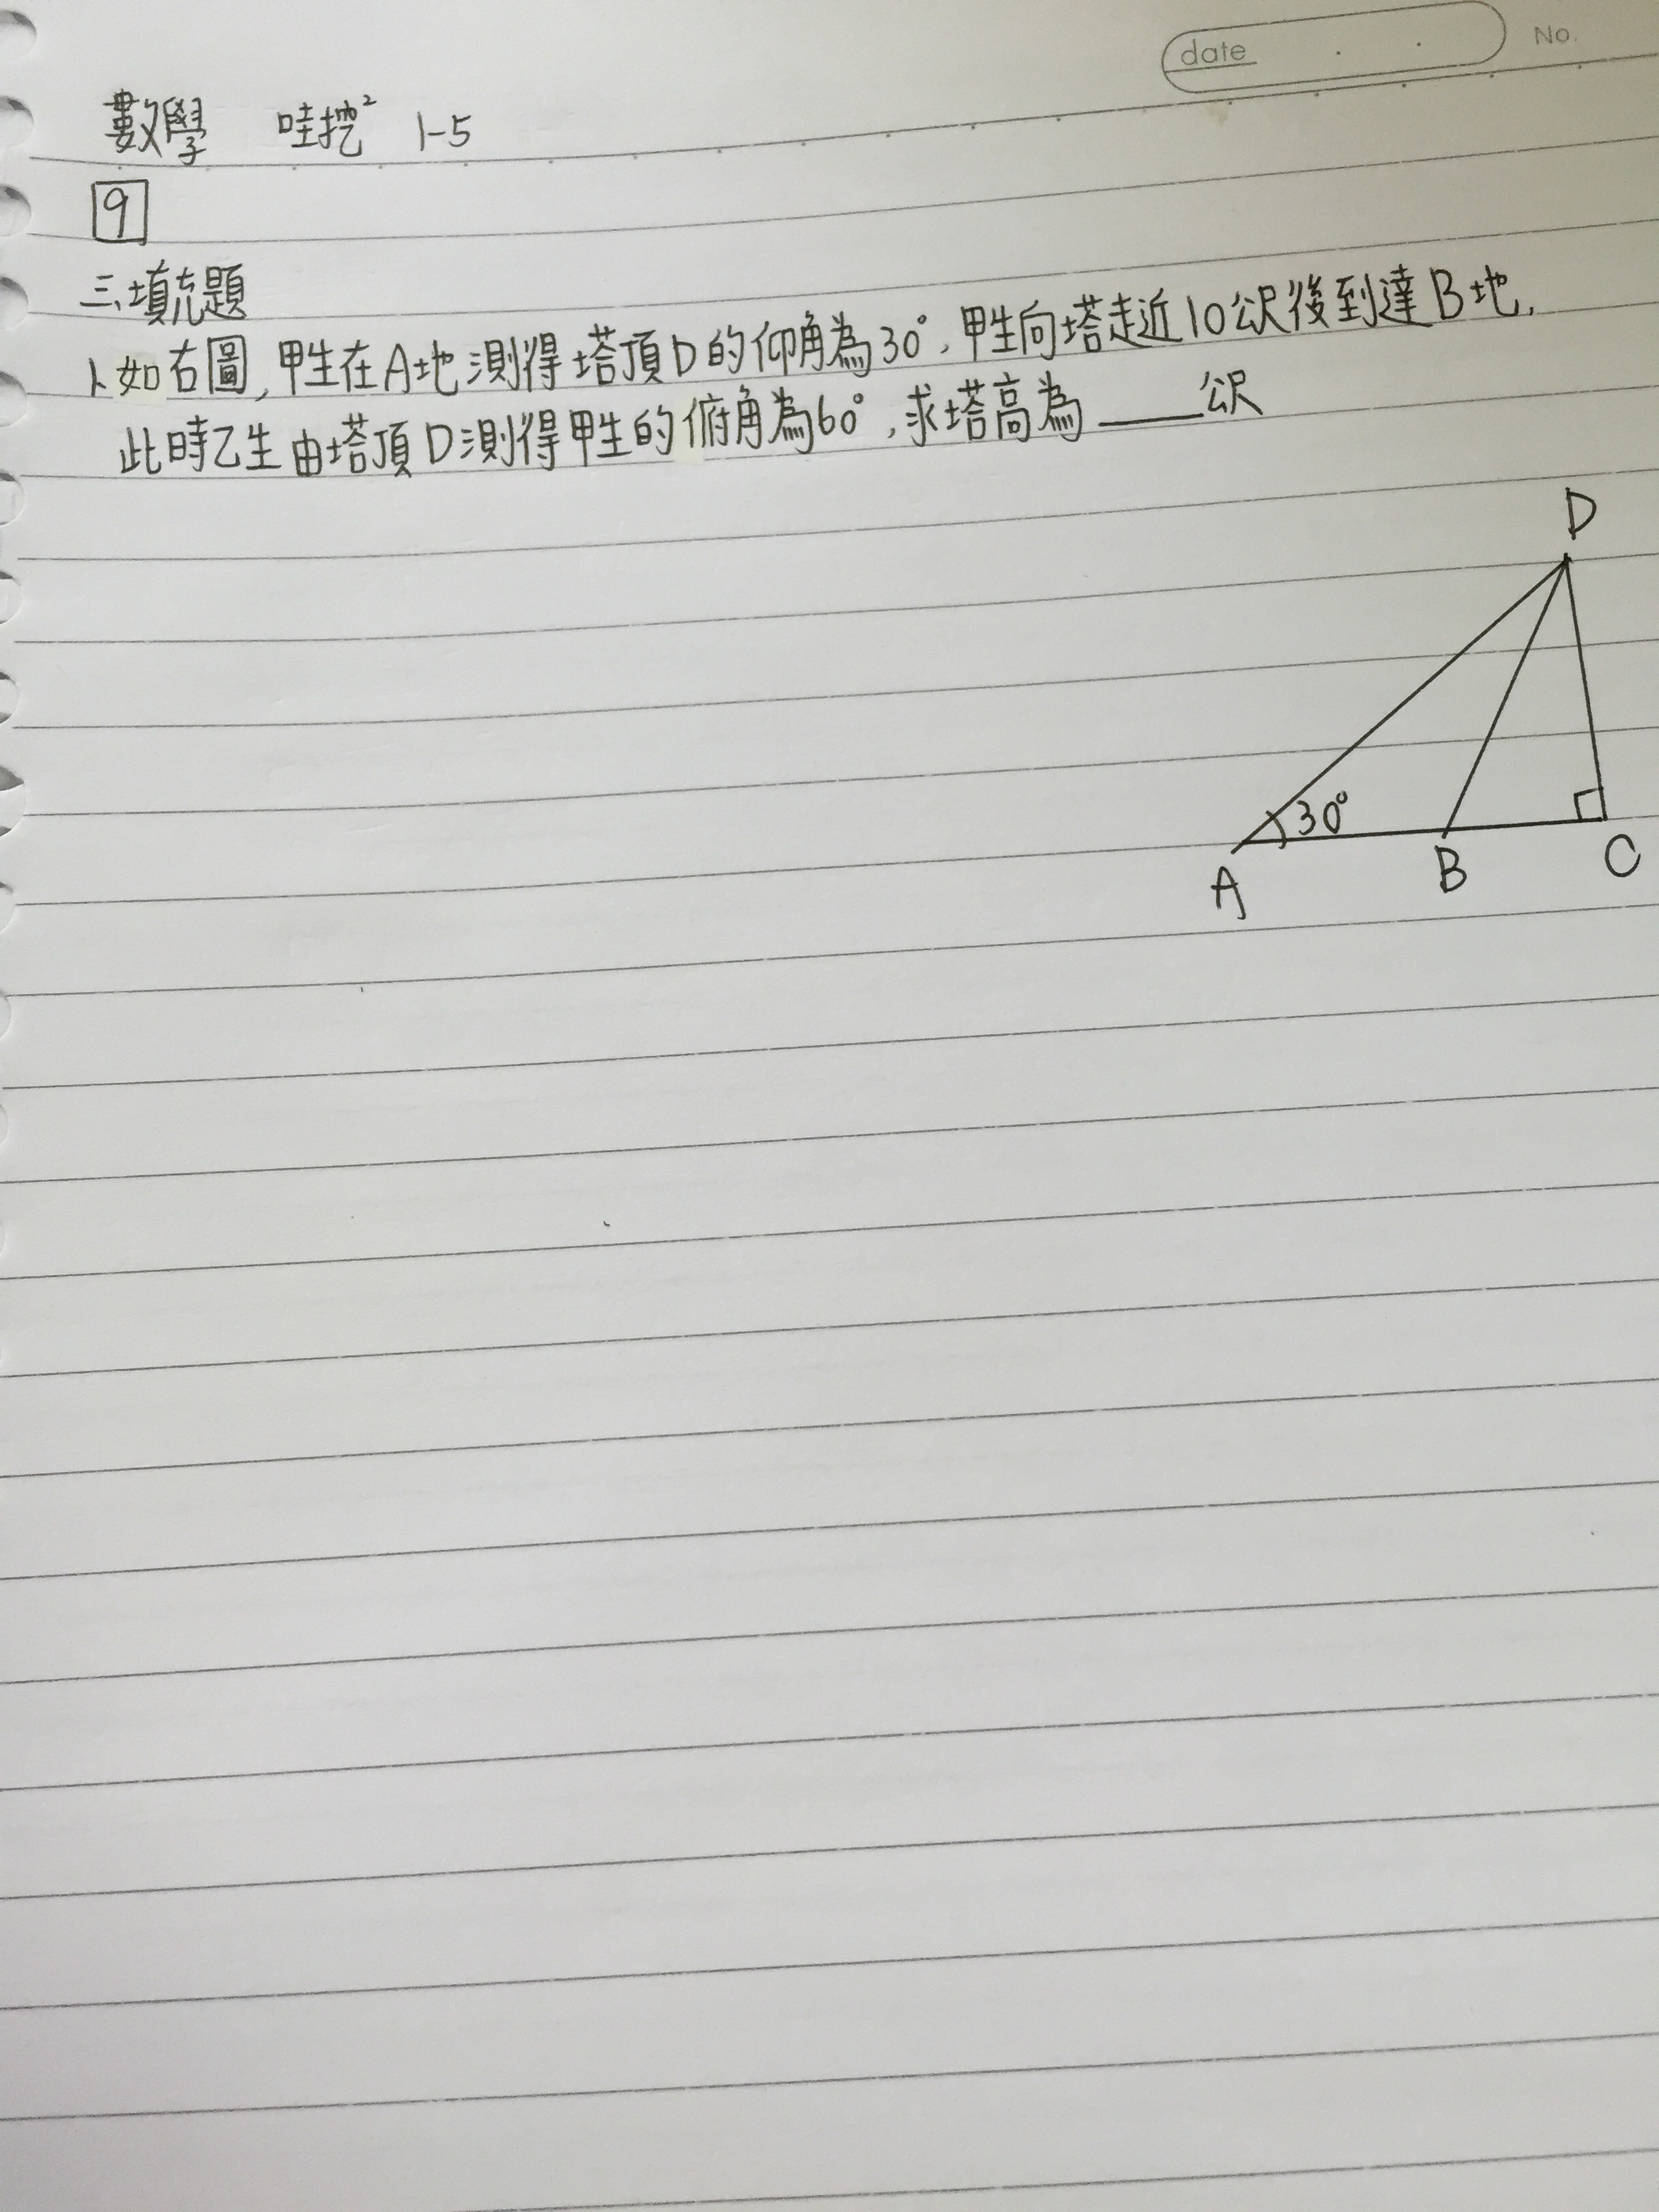 date . . No.
數學 哇挖² 1-5
9
三、填充題
1. 如右圖, 甲生在A地測得塔頂D的仰角為30°, 甲生向塔走近10公尺後到達B地,
此時乙生由塔頂D測得甲生的俯角為60°, 求塔高為____公尺
D
30°
A B C